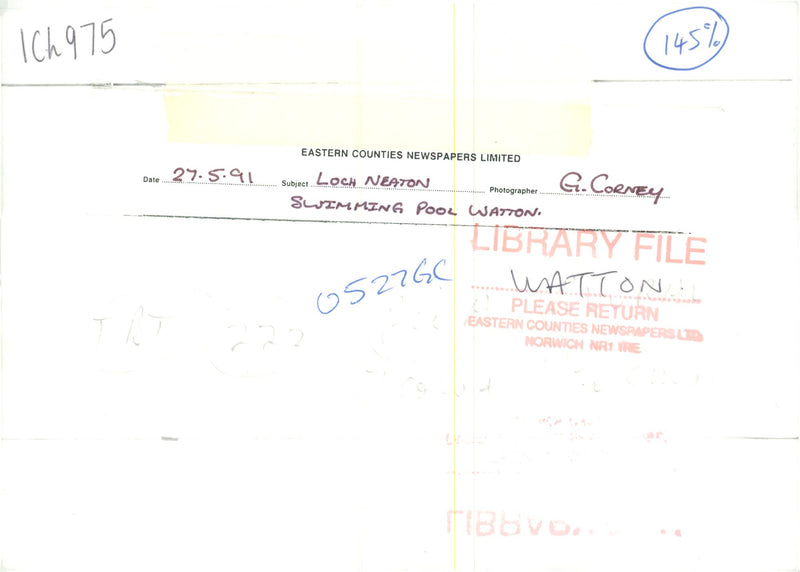 1Ch975
145%
EASTERN COUNTIES NEWSPAPERS LIMITED
Date 27.5.91 Subject LOCH NEATON Photographer G. CORNEY
SWIMMING POOL WATTON.
LIBRARY FILE
WATTON
PLEASE RETURN
EASTERN COUNTIES NEWSPAPERS LTD
NORWICH NR1 1RE
0527GC
222